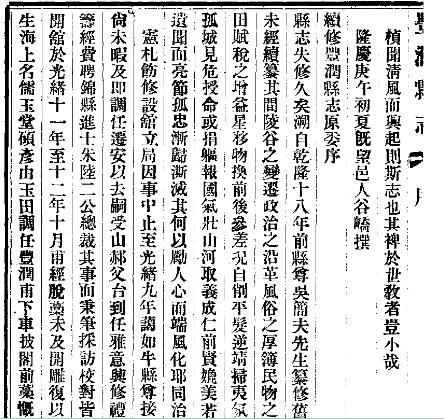 豐潤縣志　序
楨聞淸風而興起則斯志也其裨於世敎者豈小哉
隆慶庚午初夏旣望邑人谷嶠撰
續修豐潤縣志原委序
縣志失修久矣溯自乾隆十八年前縣尊吳簡夫先生纂修舊
未經續纂其間陵谷之變遷政治之沿革風俗之厚簿民物之
田賦稅之增益星移物換前後參差況自削平髮逆靖掃夷氛
孤城見危授命或捐軀報國氣壯山河取義成仁前賢媲美若
遺聞而亮節孤忠漸歸澌滅其何以勵人心而端風化耶同治
憲札飭修設舘立局因事中止至光緖九年講如牛縣尊接
尙未暇及卽調任遷安以去嗣受山郝父台到任雅意興修禮
籌經費聘錦縣進士朱陸二公總裁其事而秉筆採訪校對皆
開舘於光緖十一年至十二年十月甫經脫藁未及開雕復以
生海上名儒玉堂碩彥由玉田調任豐潤甫下車披閱前藁慨